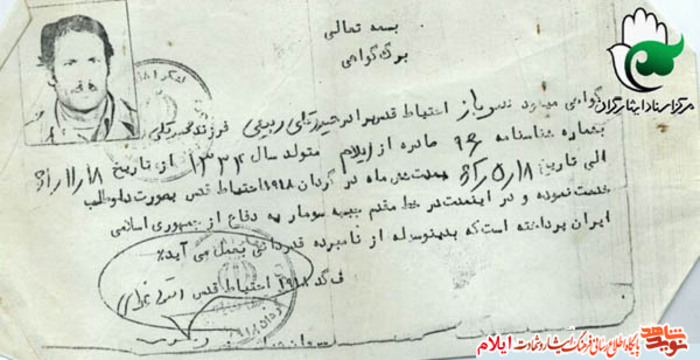 بسمه تعالی
برگ گواهی
گواهی میشود سرباز احتیاط قدس برادر حیدرقلی ربیعی فرزند محمدقلی
بشماره شناسنامه ۹۶ صادره از ایلام متولد سال ۱۳۳۴ از تاریخ
الی تاریخ بمدت شش ماه در گردان ۹۱۸ احتیاط قدس بصورت داوطلب
خدمت نموده و در اینمدت در خط مقدم جبهه سومار به دفاع از جمهوری اسلامی
ایران پرداخته است که بدینوسیله از نامبرده قدردانی بعمل می آید٪
ف گد ۹۱۸ احتیاط قدس
مرکز اسناد ایثارگران
نوید شاهد
پایگاه اطلاع رسانی فرهنگ ایثار و شهادت ایلام